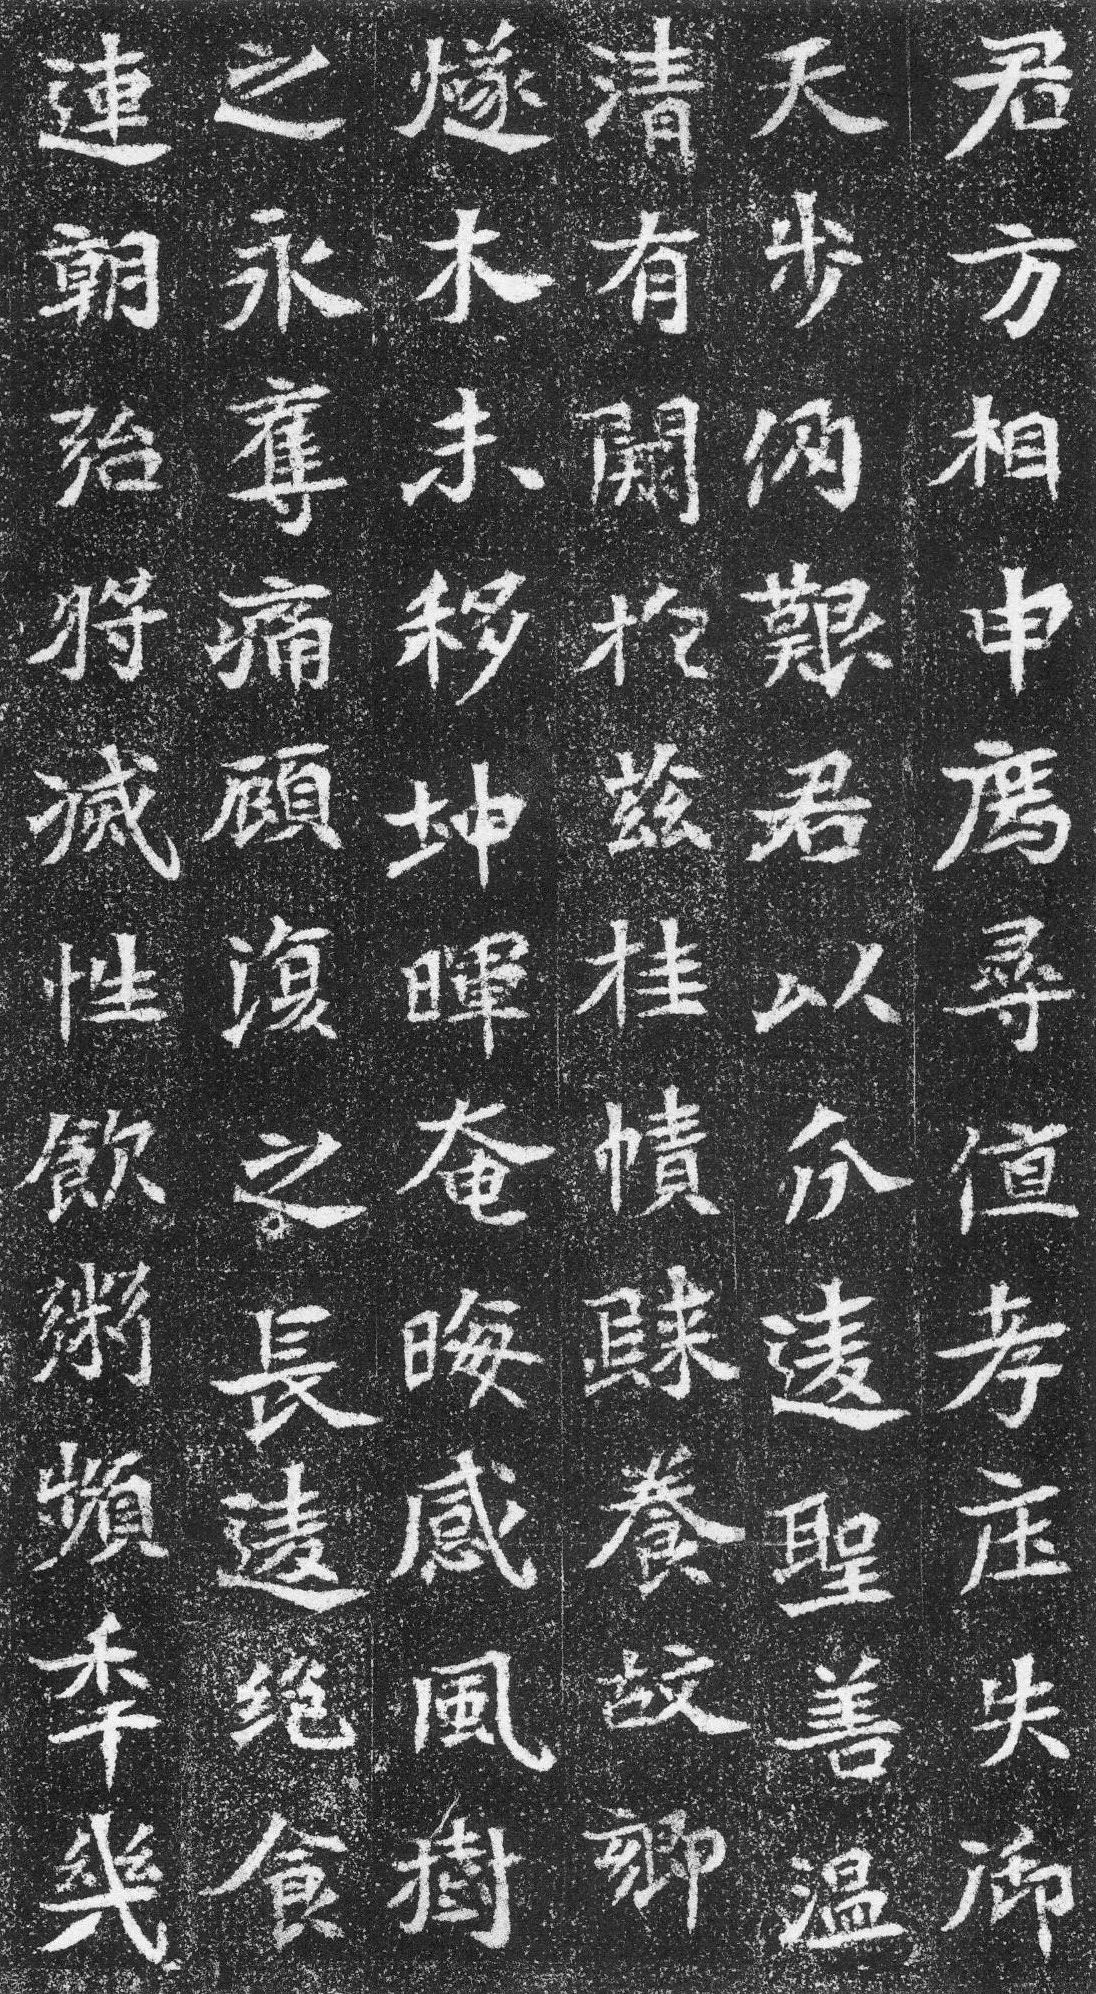 君方相申薦尋值孝庄失御
天步艱君以介違聖善溫
清有闕於茲挂幘歸養故鄉
燧木未移坤暉奄晦感風樹
之永奪痛顧復之長違絕食
連朝殆將滅性飲粥頻秊幾